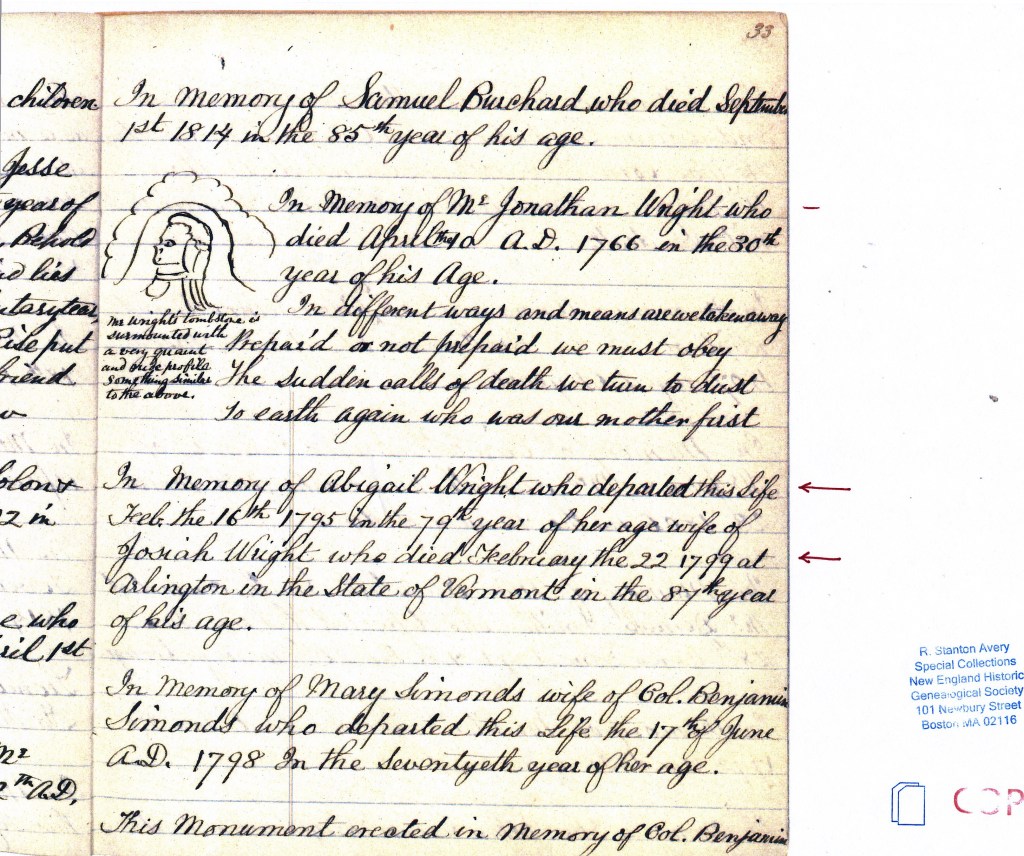 33
children
Jesse
year of
Behold
lies
Rise put
friend
22 in
e who
ril 1st
Mr
Th A.D.
In memory of Samuel Burchard who died September
1st 1814 in the 85th year of his age.
In Memory of Mr Jonathan Wright who
died April the 10 A.D. 1766 in the 30th
year of his Age.
In different ways and means are we taken away
Prepai'd or not prepai'd we must obey
The sudden calls of death we turn to dust
To earth again who was our mother first
Mr Wright's tombstone is
surmounted with
a very quaint
and profile
something similar
to the above.
In Memory of Abigail Wright who departed this Life
Feb. the 16th 1795 in the 79th year of her age wife of
Josiah Wright who died February the 22 1799 at
Arlington in the State of Vermont in the 87th year
of his age.
In Memory of Mary Simonds wife of Col. Benjamin
Simonds who departed this Life the 17th of June
A.D. 1798 In the Seventyeth year of her age.
This Monument erected in Memory of Col. Benjamin
R. Stanton Avery
Special Collections
New England Historic
Genealogical Society
101 Newbury Street
Boston MA 02116
COP